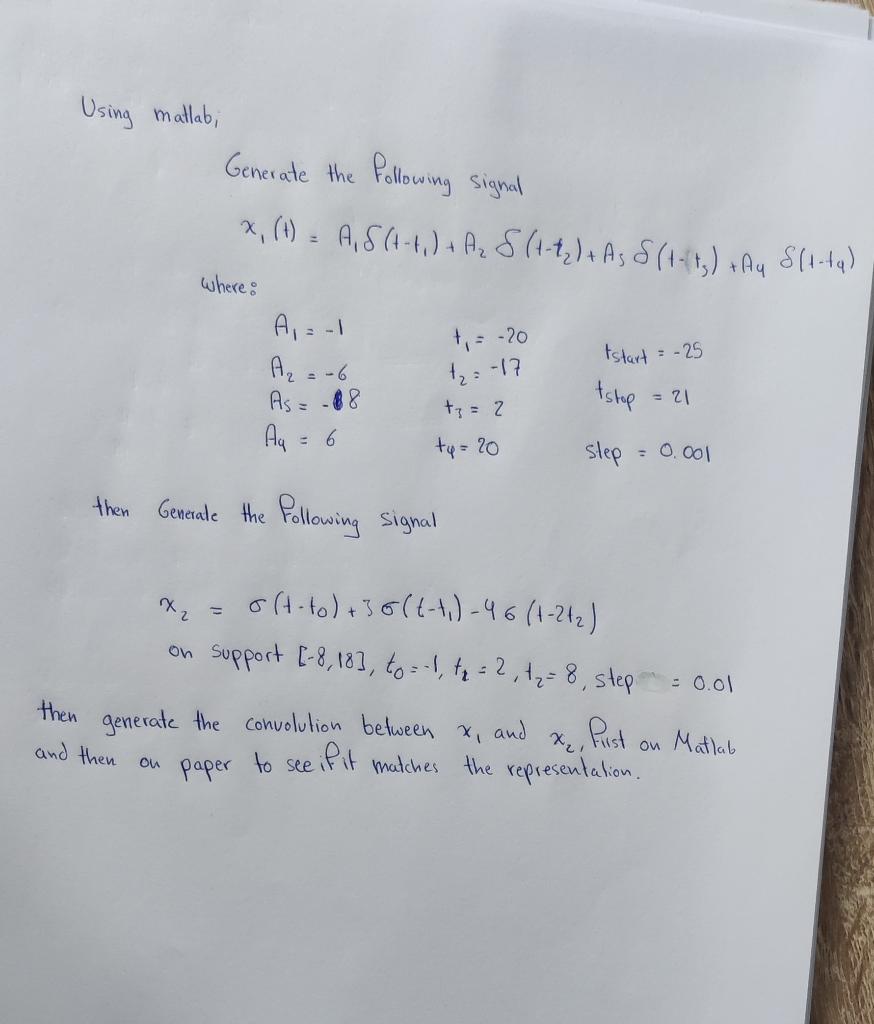 Using matlab,
Generate the following signal
x₁(t) = A₁δ(t-t₁) + A₂ δ(t-t₂) + A₃ δ(t-t₃) + A₄ δ(t-t₄)
where:
A₁ = -1 t₁ = -20 tstart = -25
A₂ = -6 t₂ = -17 tstop = 21
A₃ = -8 t₃ = 2
A₄ = 6 t₄ = 20 step = 0.001
then Generate the following signal
x₂ = σ(t-t₀) + 3σ(t-t₁) - 4σ(t-2t₂)
on support [-8,18], t₀ = -1, t₁ = 2, t₂ = 8, step = 0.01
then generate the convolution between x₁ and x₂, first on Matlab
and then on paper to see if it matches the representation.